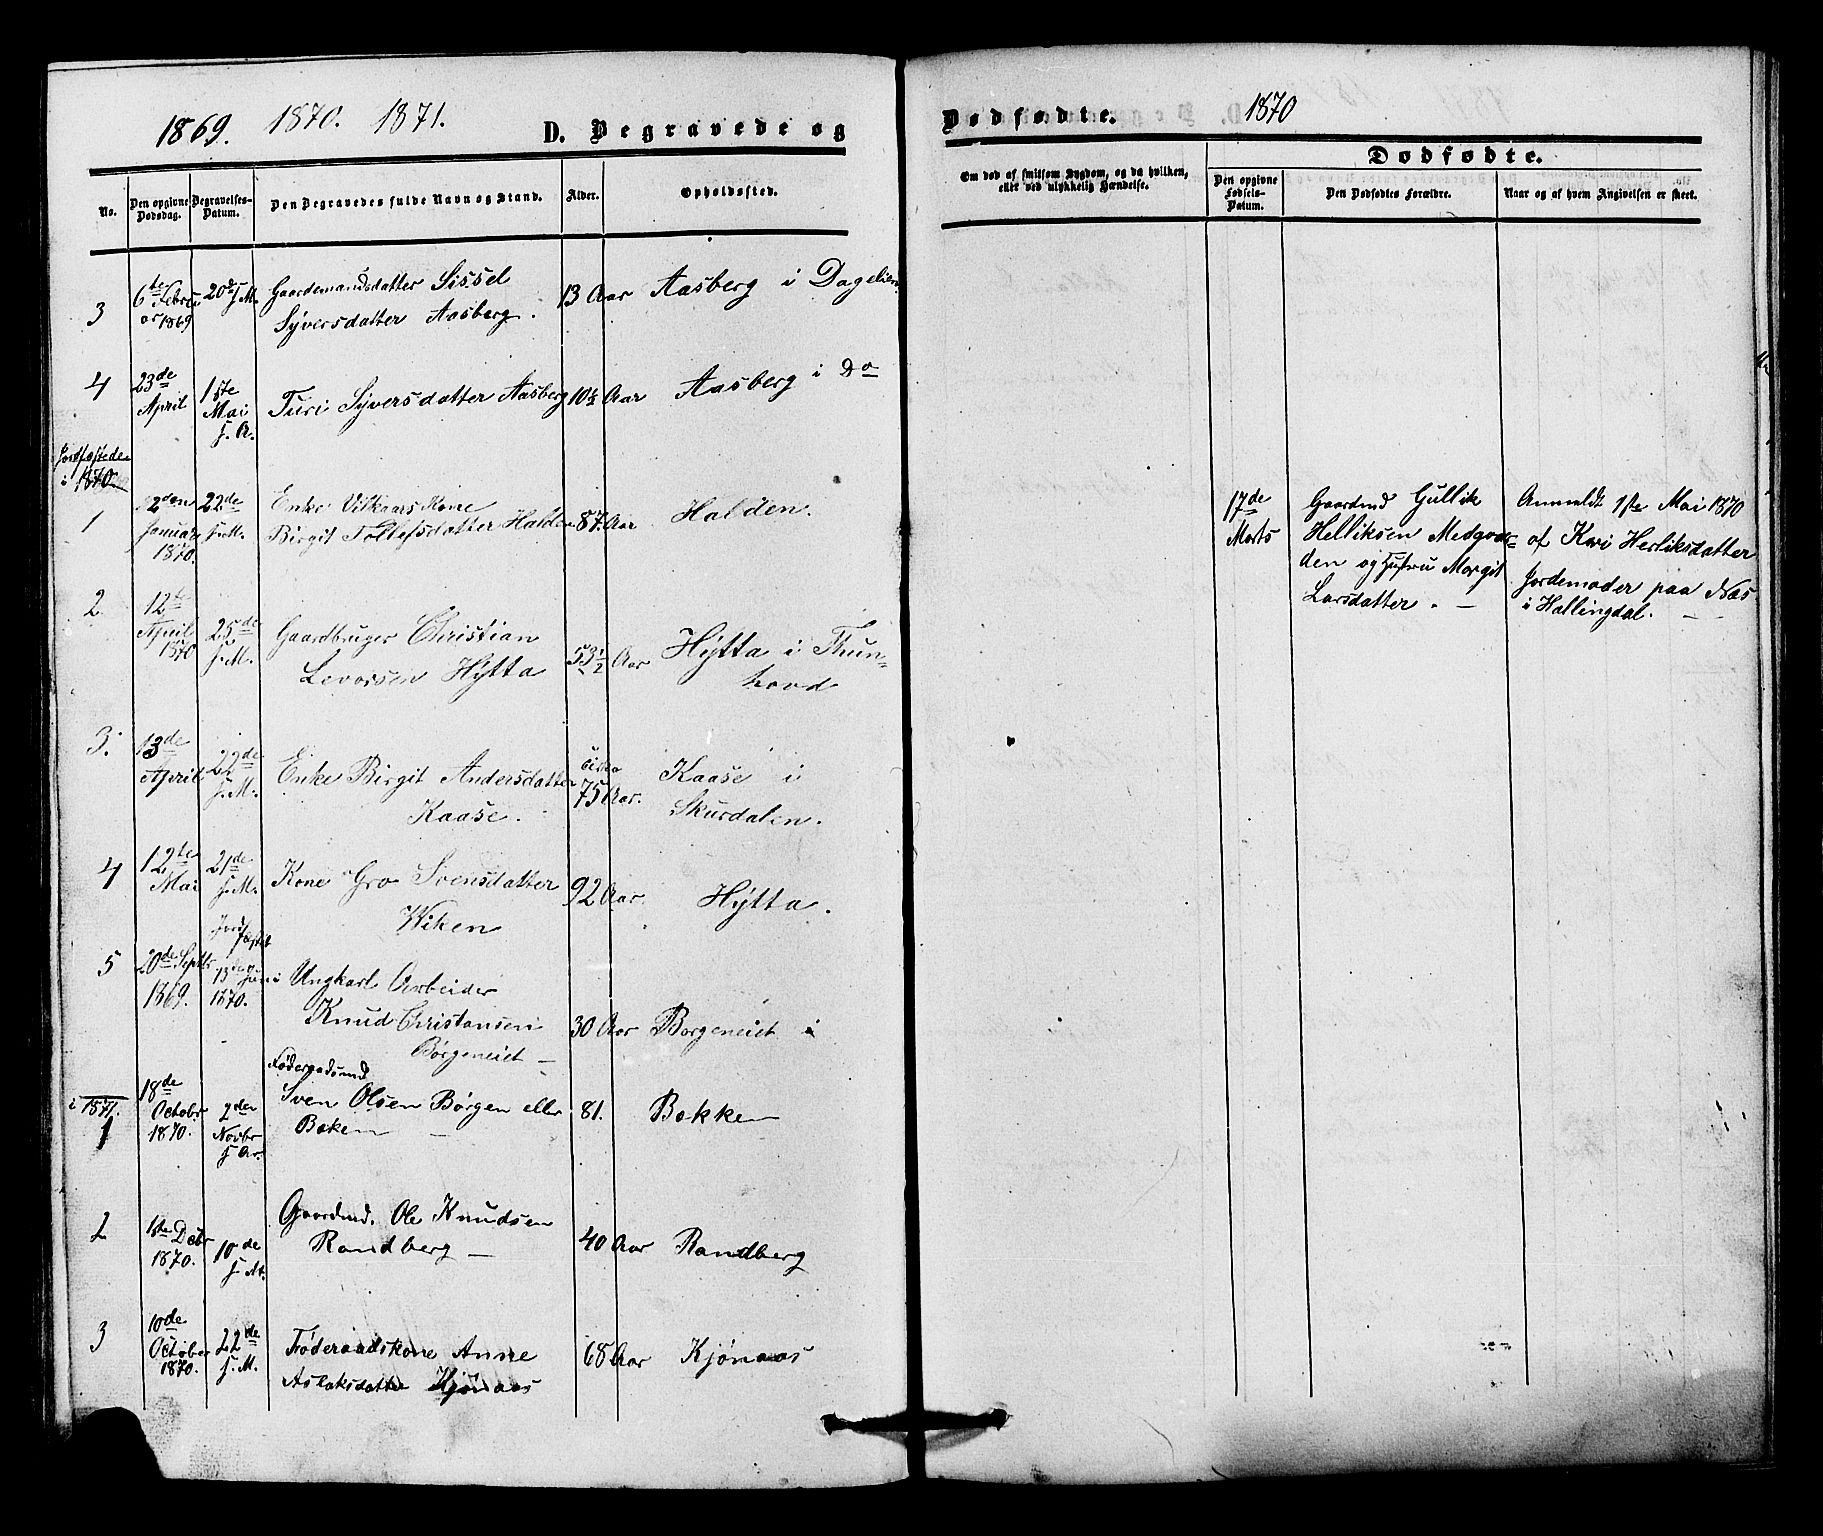 1869. 1870. 1871.
D. Begravede og
No.
Den opgivne Dødsdag.
Begravelses-Datum.
Den Begravedes fulde Navn og Stand.
Alder.
Opholdssted.
3
6te Februar 1869
20de f. M.
Gaardemandsdatter Sissel
Syversdatter Aasberg.
13 Aar
Aasberg i Dagelien
4
23de April
1ste Mai f. A.
Turi Syversdatter Aasberg
10½ Aar
Aasberg i Do
Jordfæstede
i 1870
1
2den Januar 1870.
22de f. M.
Enke Vilkaars Kone
Birgit Tollefsdatter Halden
87 Aar
Halden.
2
12te April 1870
25de f. M.
Gaardbruger Christian
Levorsen Hytta
53½ Aar
Hytta i Thun-
hovd
3.
13de April
22de f. M.
Enke Birgit Andersdatter
Kaase.
cirka 75 Aar.
Kaase i
Skurdalen.
4
12te Mai
21de f. M.
Kone Gro Svensdatter
Wiken
92 Aar.
Hytta.
5
20de Septbr 1869.
Jordfæstet 13de Juni 1870.
Ungkarl Arbeider
Knud Christansen
Børgeneiet
30 Aar
Borgeneiet i
i 1871.
1
18de Octobr 1870.
2den Novbr f. Ar.
Føderaadsmd
Sven Olsen Børgen eller
Boken
81.
Bakken
2
1ste Decbr 1870.
10de f. M.
Gaardmd. Ole Knudsen
Randberg
40 Aar
Randberg
3
10de October 1870.
22de f. M.
Føderaadskone Anne
Aslaksdatter Kjønaas
68 Aar
Kjønaas
Dødfødte.
1870
Om død af smitsom Sygdom, og da hvilken,
eller ved ulykkelig Hændelse.
Dødfødte.
Den opgivne Fødsels-Datum.
Den Dødfødtes Forældre.
Naar og af hvem Angivelsen er skeet.
17de Marts
Gaardmd Gullik
Helliksen Medgaar-
den og Hustru Margit
Larsdatter.
Anmeldt 1ste Mai 1870
af Kari Herliksdatter
Jordemoder paa Næs
i Hallingdal.